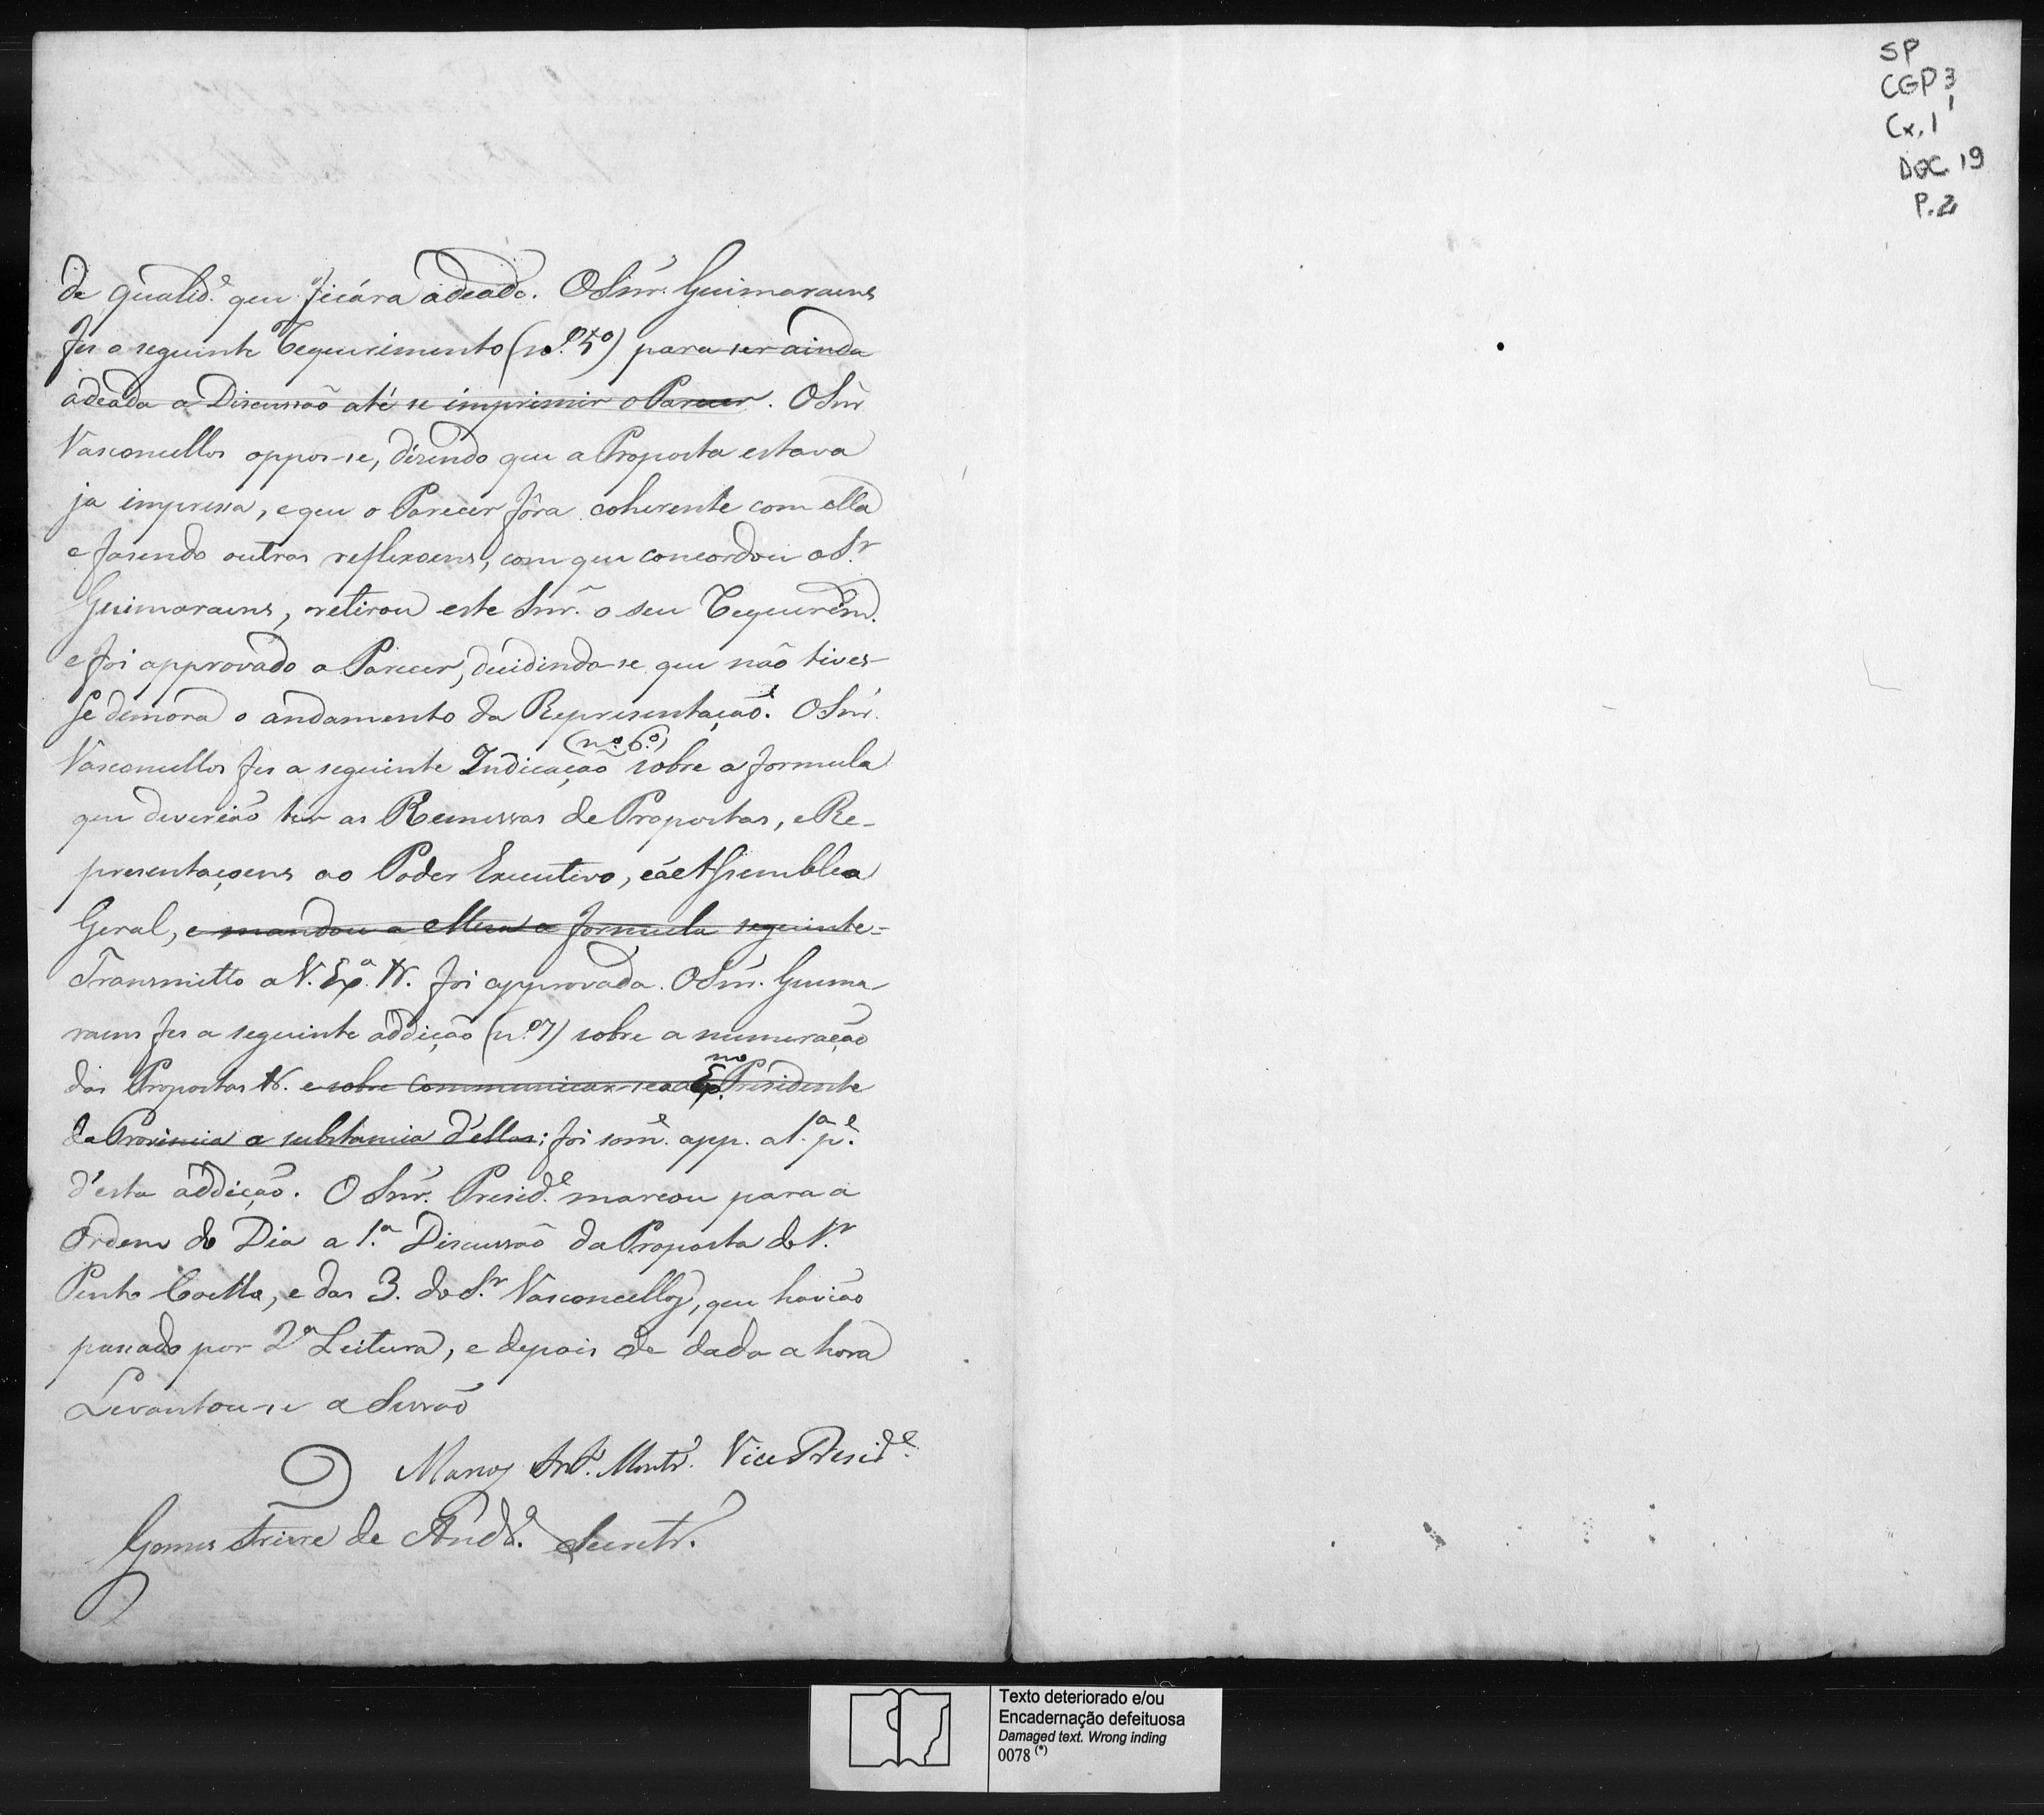 SP
CGP 3
1
Cx. 1
DOC. 19
P. 2
de qualid.e que ficára adeado. O Snr. Guimaraens
fes o seguinte Requerimento (n.º 5º) para ser ainda
adeada a Discussão até se imprimir o Parecer. O Snr
Vasconcellos oppos-se, disendo que a Proposta estava
ja impressa, e que o Parecer fôra coherente com ella
e fasendo outras reflexoens, com que concordou o Sr.
Guimaraens, retirou este Snr. o seu Requerim.
e foi approvado o Parecer, decidindo-se que não tives-
se demora o andamento da Representação. O Snr.
(nº 6º)
Vasconcellos fes a seguinte Indicação sobre a formula
que deverião ter as Remessas de Propostas, e Re-
presentaçoens ao Poder Executivo, e á Assemblea
Geral, e mandou a Mesa a formula seguinte=
Transmitto a V. Ex.a &. foi approvada. O Snr. Guima
raens fes a seguinte addição (n.º 7) sobre a numeração
das Propostas &. e sobre communicar-se ao Ex.mo Presidente
da Provincia a substancia d'ellas; foi som.e app. a 1.ª p.e
d'esta addição. O Snr. Presid.e marcou para a
Ordem do Dia a 1.ª Discussão da Proposta do Sr.
Pinto Coelho, e das 3. do Sr. Vasconcellos, que havião
passado por 2ª Leitura, e depois de dada a hora
Levantou-se a Sessão
Manoel Ant.º Montr.º Vice Presid.e
Gomes Freire de Andr.e Secretr.º
Texto deteriorado e/ou
Encadernação defeituosa
Damaged text. Wrong inding
0078 (*)